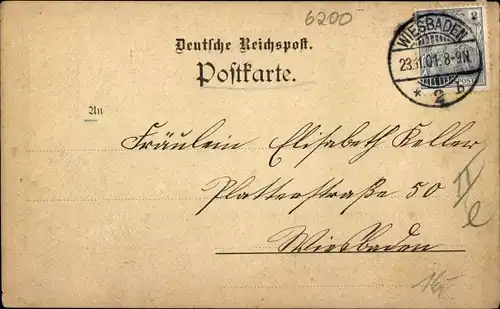 6200
Deutsche Reichspost.
Postkarte.
2
WIESBADEN
8-9N.
* 2 b
An
Fräulein Elisabeth Keller,
Platterstraße 50
Wiesbaden